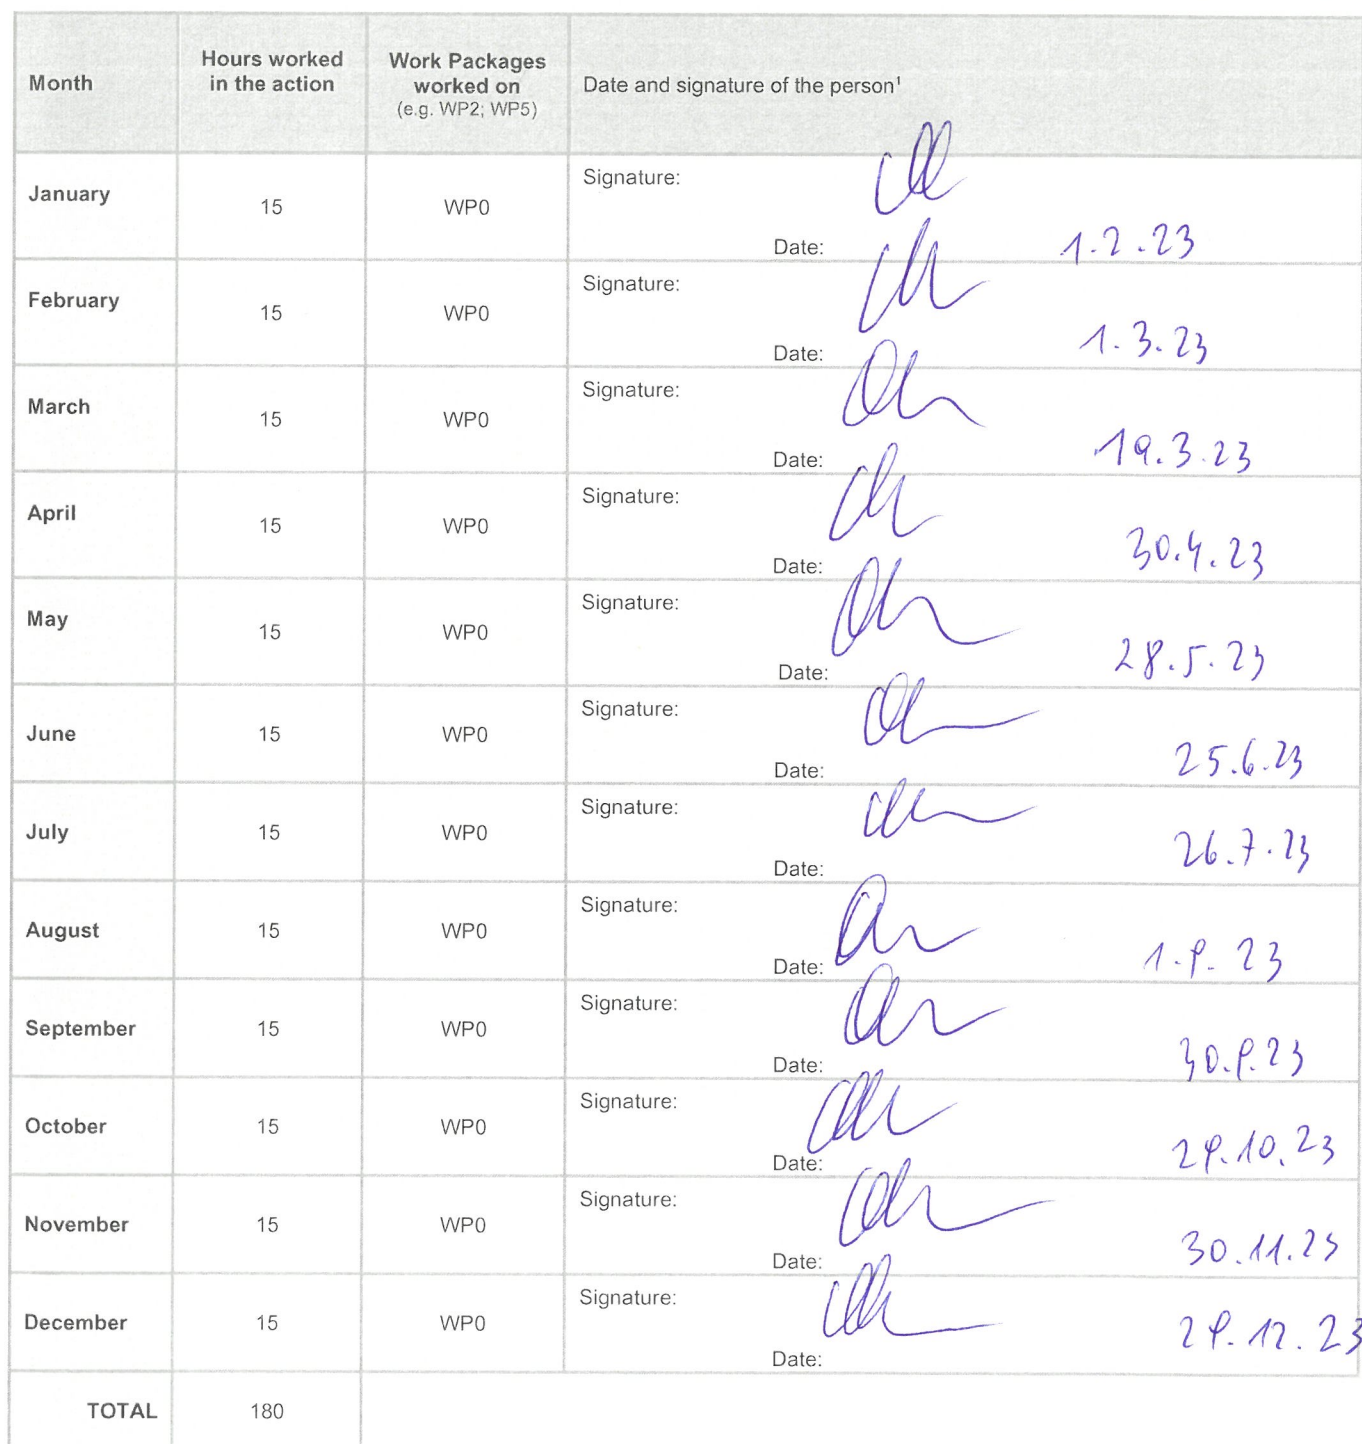 Month
Hours worked in the action
Work Packages worked on (e.g. WP2; WP5)
Date and signature of the person¹
January 15 WP0 Signature:
Date: 1.2.23
February 15 WP0 Signature:
Date: 1.3.23
March 15 WP0 Signature:
Date: 19.3.23
April 15 WP0 Signature:
Date: 30.4.23
May 15 WP0 Signature:
Date: 28.5.23
June 15 WP0 Signature:
Date: 25.6.23
July 15 WP0 Signature:
Date: 26.7.23
August 15 WP0 Signature:
Date: 1.9.23
September 15 WP0 Signature:
Date: 30.9.23
October 15 WP0 Signature:
Date: 29.10.23
November 15 WP0 Signature:
Date: 30.11.23
December 15 WP0 Signature:
Date: 29.12.23
TOTAL 180